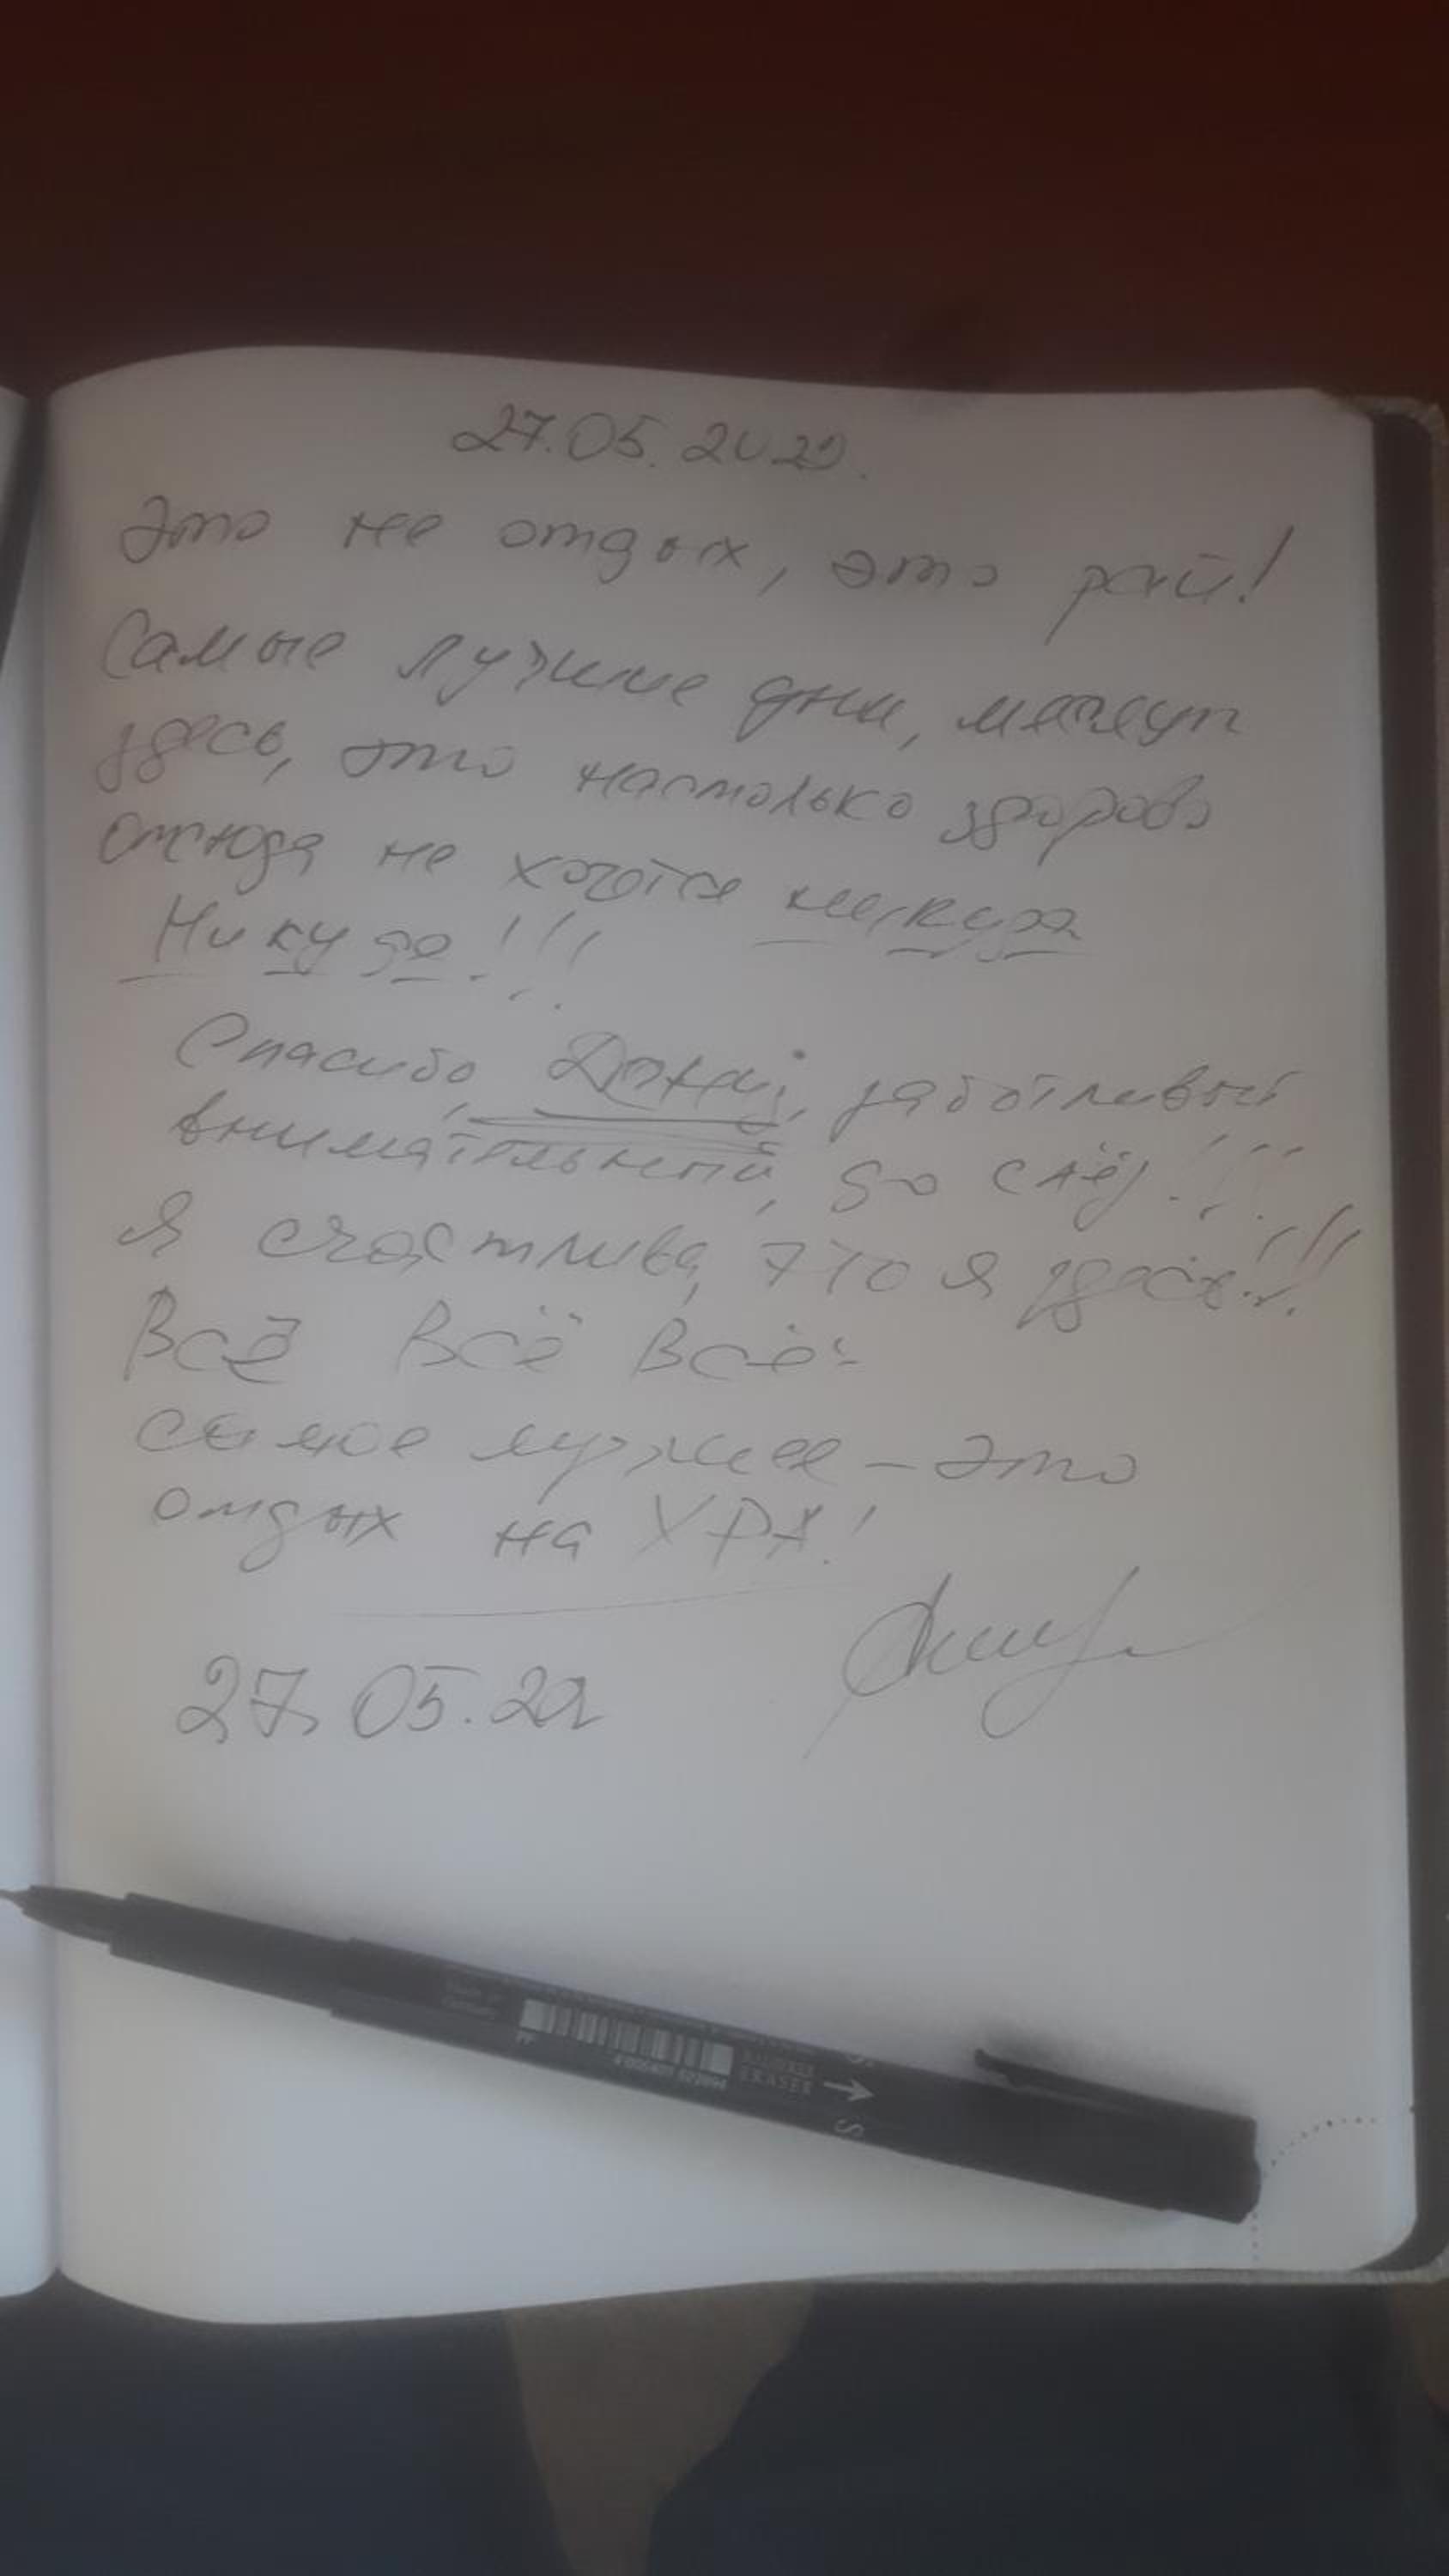 27.05.2022.
Это не отдых, это рай!
Самые лучшие дни,
здесь, это настолько здорово
отсюда не хочется никуда
Никуда!!!
Спасибо, заботливый
внимательный, до слёз!!!
Я счастлива, что я здесь!!!
Всё Всё Всё
самое лучшее - это
отдых на
27.05.22
ERASER